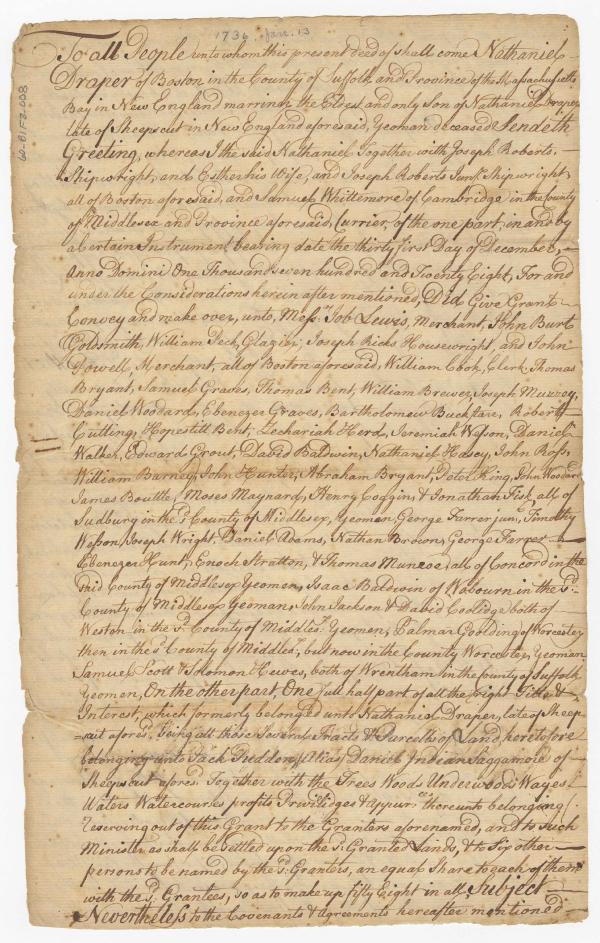 1736 Jan. 13
60-B1F2-008
To all People unto whom this present deed of shall come Nathaniel
Draper of Boston in the County of Suffolk and Province of the Massachusetts
Bay in New England marriner the Eldest and only Son of Nathaniel Draper
late of Sheepscut in New England aforesaid, Yeoman deceased Sendeth
Greeting, whereas I the said Nathaniel Together with Joseph Roberts.
Shipwright, and Esther his Wife, and Joseph Roberts Junr. Shipwright,
all of Boston aforesaid, and Samuel Whittemore of Cambridge in the County
of Middlesex and Province aforesaid, Currier, of the one part, in and by
a Certain Instrument bearing date the thirty first Day of December,
Anno Domini One Thousand seven hundred and Twenty Eight, For and
under the Considerations herein after mentioned, Did Give Grant
Convey and make over, unto, Messrs. Job Lewis, Merchant, John Burt
Goldsmith, William Peck, Glazier, Joseph Ricks Housewright, and John
Powell, Merchant, all of Boston aforesaid, William Cook, Clerk Thomas
Bryant, Samuel Graves, Thomas Bent, William Brewer, Joseph Muzzey,
Daniel Woodard, Ebenezer Graves, Bartholomew Robert
Cutting, Hopestill Bent, Zechariah Herd, Jeremiah Wesson, Daniel
Walker, Edward Grout, David Baldwin, Nathaniel Hasey, John Ross,
William Barney, John Hunter, Abraham Bryant, Peter King, John Woodard
James Bouttle, Moses Maynard, Henry Coggin, & Jonathan Fisk, all of
Sudbury in the sd. County of Middlesex, Yeomen, George Farrer junr. Timothy
Wesson, Joseph Wright, Daniel Adams, Nathan Brown, George Farrer
Ebenezer Hunt, Enoch Stratton, & Thomas Munroe, all of Concord in the
said County of Middlesex Yeomen, Isaac Baldwin of Wobourn in the sd.
County of Middlesex Yeoman, John Jackson & David Coolidge both of
Weston in the sd. County of Middlesx. Yeomen, Palmar Goolding of Worcester
then in the sd. County of Middlesx. but now in the County Worcester, Yeoman
Samuel Scott & Solomon Hewes, both of Wrentham in the County of Suffolk
Yeomen, On the other part, One full half part of all the right Title &
Interest, which formerly belonged unto Nathaniel Draper, late of Sheep
=scut aforesd. being all those Several Tracts & Parcells of Land, heretofore
belonging unto Jack Puddon, Alias Daniel Indian Saggamore of
Sheepscut aforesd. Together with the Trees Woods Underwoods Wayes
Waters Watercourses profits Priviledges & Appurces thereunto belonging
Reserving out of this Grant to the Granters aforenamed, and to such
Minister as shall be settled upon the sd. Granted Lands, & to Six other
persons to be named by the sd. Granters, an equal Share to each of them
with the sd. Grantees, so as to make up fifty Eight in all, Subject
Nevertheless to the Covenants & Agreements hereafter mentioned